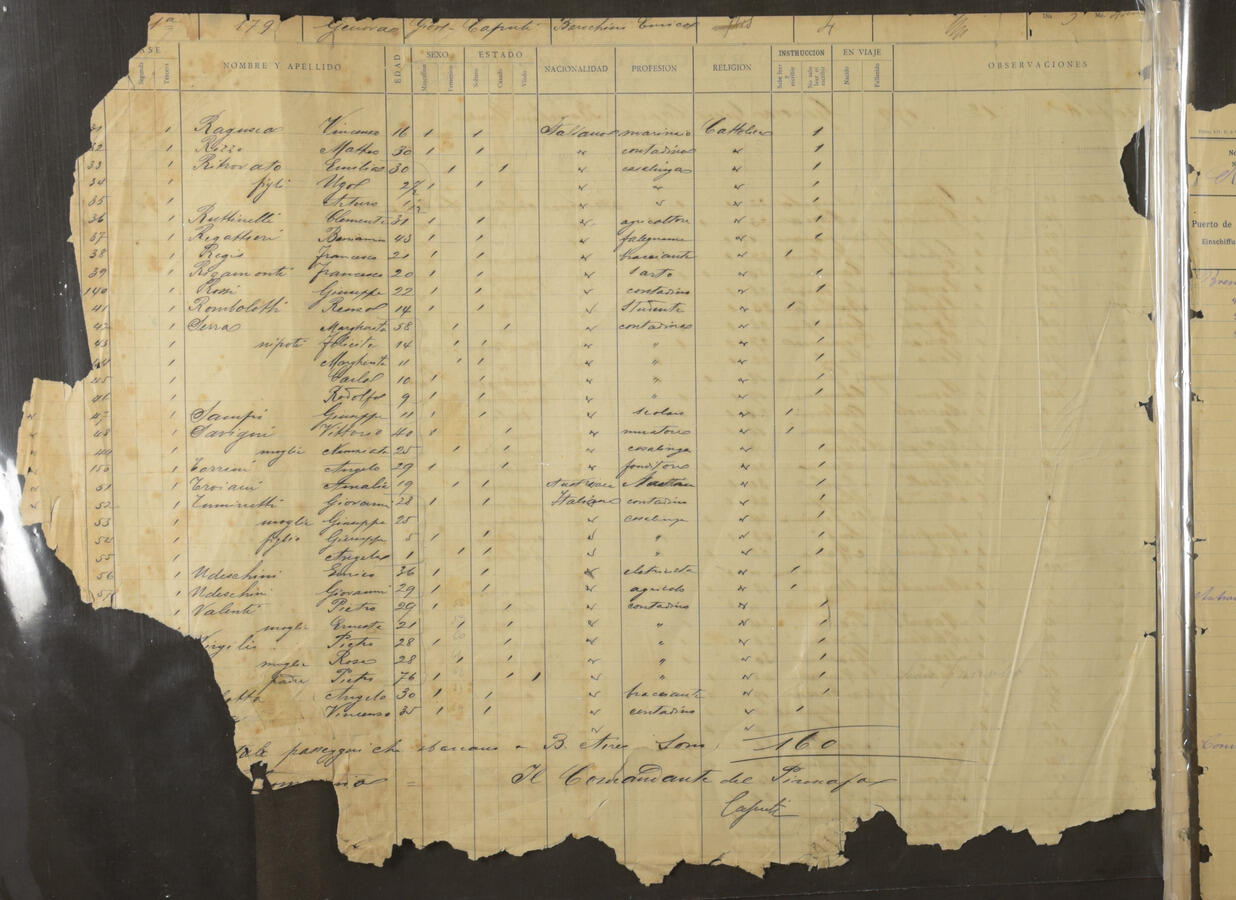 179 Genova Caputi Enrico 4
NOMBRE Y APELLIDO EDAD SEXO ESTADO NACIONALIDAD PROFESION RELIGION INSTRUCCION EN VIAJE OBSERVACIONES
Segunda Tercera Masculino Femenino Soltero Casado Viudo Sabe leer y escribir No sabe leer ni escribir Nacido Fallecido
31 1 Ragusea Vincenzo 16 1 1 Italiano marinaio Cattolica 1
32 1 Rizzo Matteo 30 1 1 " contadino " 1
33 1 Ritrovato Emilia 30 1 1 " casalinga " 1
34 1 figli Ugo 1 " " " 1
35 1 Arturo " " "
36 1 Ruttinelli Clemente 31 1 1 " agricoltore " 1
37 1 Rigattieri 43 1 1 " falegname " 1
38 1 Regis Francesco 21 1 1 " bracciante " 1
39 1 Rizamonti Francesco 20 1 1 " sarto " 1
140 1 Rossi Giuseppe 22 1 1 " contadino " 1
41 1 Rombolotti Renzo 14 1 1 " studente " 1
42 1 Serra Margherita 58 1 1 " contadina " 1
43 1 nipoti Felicita 14 1 1 " " " 1
44 1 Margherita 11 1 1 " " " 1
45 1 Carlo 10 1 1 " " " 1
46 1 Rodolfo 9 1 1 " " " 1
47 1 Sampi Giuseppe 11 1 1 " scolaro " 1
48 1 Savigni Vittorio 40 1 1 " muratore " 1
49 1 moglie Nunziata 25 1 1 " casalinga " 1
150 1 Torrini Angelo 29 1 1 " fonditore " 1
51 1 Troiani Amalia 19 1 1 " 1
52 1 Giovanni 28 1 1 Italiana contadino " 1
53 1 moglie Giuseppa 25 " casalinga "
54 1 figlio Giuseppe 5 1 1 " " " 1
55 1 Angela 1 1 1 " " " 1
56 1 Udeschini Enrico 36 1 1 " eletricista " 1
57 1 Udeschini Giovanni 29 1 1 " agricolo " 1
1 Valenti Pietro 29 1 1 " contadino " 1
moglie Ernesta 21 1 1 " " " 1
Virgilio Pietro 28 1 1 " " " 1
moglie Rosa 28 1 1 " " " 1
padre Pietro 76 1 1 " " " 1
Angelo 30 1 1 " bracciante " 1
Vincenzo 35 1 1 " contadino " 1
passeggeri che sbarcano a B. Aires Sono 160
Il Comandante del Piroscafo
Caputi
Puerto de
Einschiffu